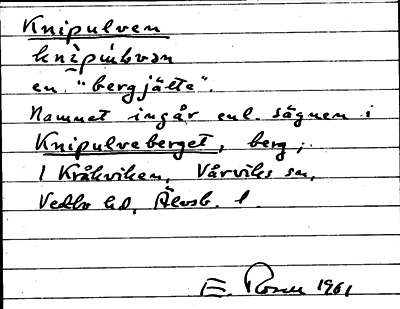 Knipulven
en "bergjätte".
Namnet ingår enl. sägnen i
Knipulveberget, berg,
i Kråkviken, Vårviks sn,
Vedbo hd, Älvsb. l.
E. Rosell 1961